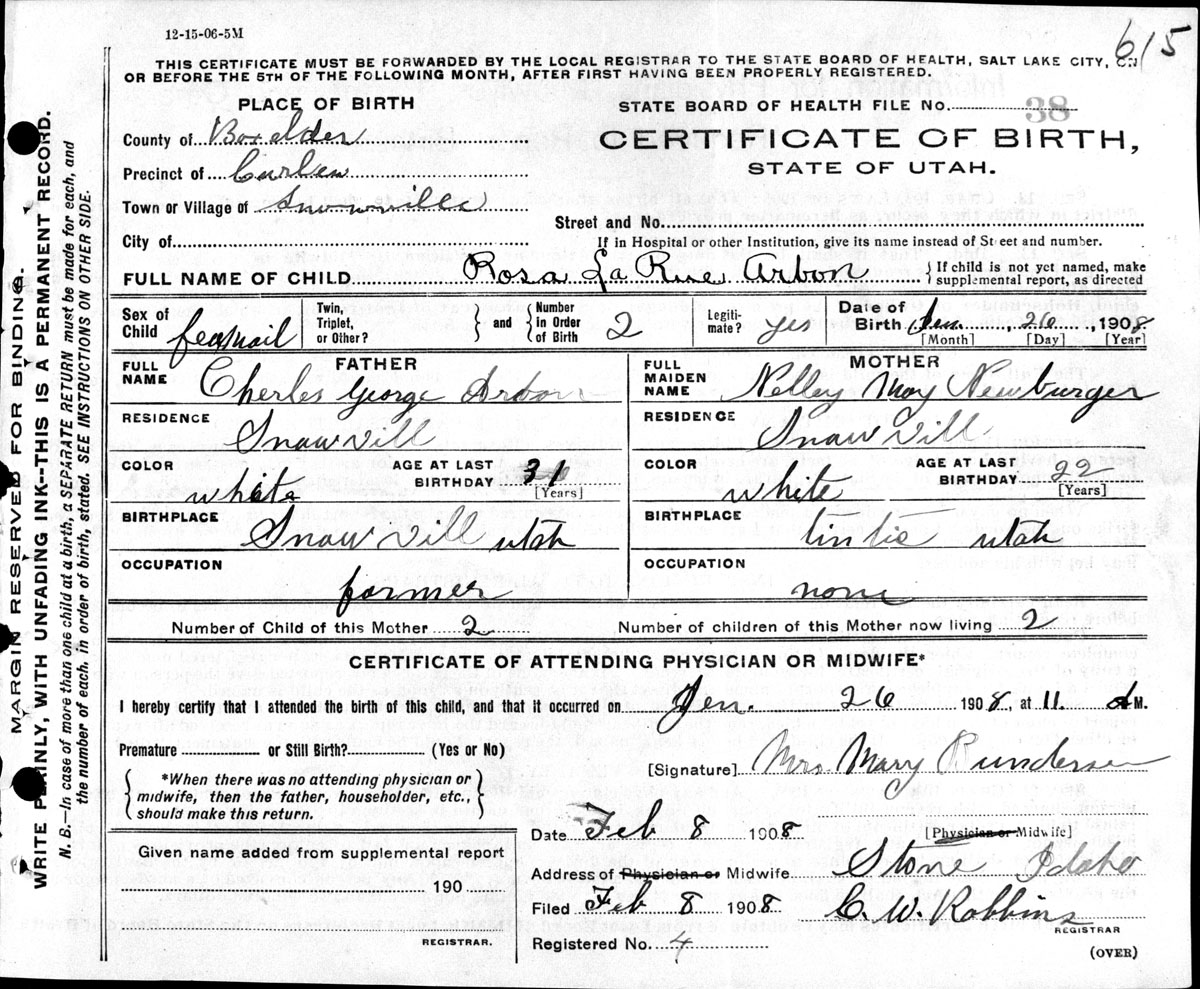 12-15-06-5M
615
THIS CERTIFICATE MUST BE FORWARDED BY THE LOCAL REGISTRAR TO THE STATE BOARD OF HEALTH, SALT LAKE CITY, ON
OR BEFORE THE 5TH OF THE FOLLOWING MONTH, AFTER FIRST HAVING BEEN PROPERLY REGISTERED.
PLACE OF BIRTH
County of Boxelder
Precinct of Curlew
Town or Village of Snowville
City of
STATE BOARD OF HEALTH FILE NO. 38
CERTIFICATE OF BIRTH,
STATE OF UTAH.
Street and No.
If in Hospital or other Institution, give its name instead of Street and number.
FULL NAME OF CHILD Rosa LaRue Arbon { If child is not yet named, make
supplemental report, as directed
Sex of Child feamail
Twin, Triplet, or Other? } and { Number in Order of Birth 2
Legitimate? yes
Date of Birth Jen. 26 1908
[Month] [Day] [Year]
FATHER
FULL NAME Cherles George Arbon
RESIDENCE Snawvill
COLOR white
AGE AT LAST BIRTHDAY 31
[Years]
BIRTHPLACE Snawvill utah
OCCUPATION former
MOTHER
FULL MAIDEN NAME Nelley May Newburger
RESIDENCE Snawvill
COLOR white
AGE AT LAST BIRTHDAY 22
[Years]
BIRTHPLACE tintic utah
OCCUPATION none
Number of Child of this Mother 2 Number of children of this Mother now living 2
CERTIFICATE OF ATTENDING PHYSICIAN OR MIDWIFE*
I hereby certify that I attended the birth of this child, and that it occurred on Jen. 26 1908, at 11. A M.
Premature or Still Birth? (Yes or No)
{ *When there was no attending physician or
midwife, then the father, householder, etc.,
should make this return. }
[Signature] Mrs Mary
Date Feb 8 1908 [Physician or Midwife]
Address of Physician or Midwife Stone Idaho
Filed Feb 8 1908 C. W. Robbins
REGISTRAR
Registered No. 4
(OVER)
Given name added from supplemental report
190
REGISTRAR.
MARGIN RESERVED FOR BINDING.
WRITE PLAINLY, WITH UNFADING INK—THIS IS A PERMANENT RECORD.
N. B.—In case of more than one child at a birth, a SEPARATE RETURN must be made for each, and
the number of each, in order of birth, stated. SEE INSTRUCTIONS ON OTHER SIDE.